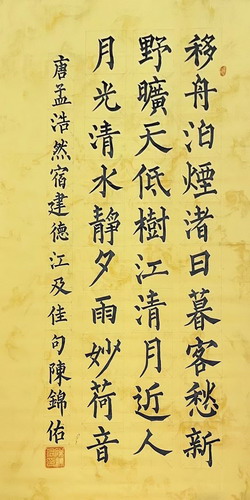 移舟泊煙渚日暮客愁新
野曠天低樹江清月近人
月光清水靜夕雨妙荷音
唐孟浩然宿建德江及佳句陳錦佑